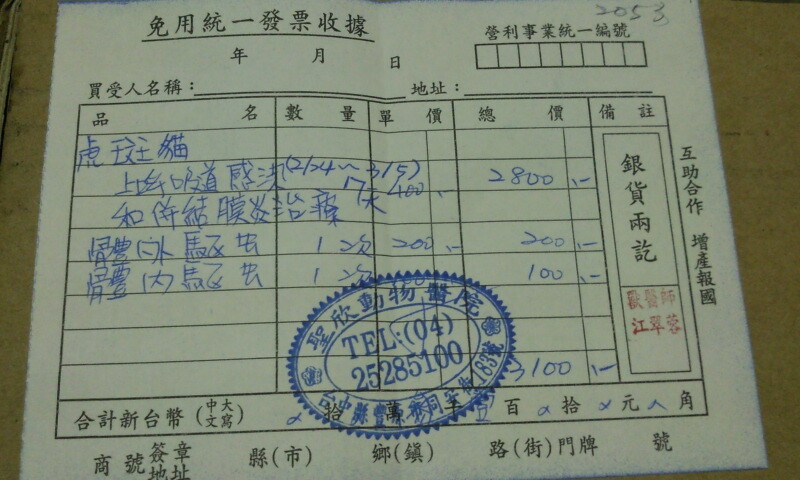 2053
免用統一發票收據
營利事業統一編號
年 月 日
買受人名稱： 地址：
品 名 數 量 單 價 總 價 備 註
虎斑貓
上呼吸道感染(2/24～3/5)
400 2800
和併結膜炎治療 天
體外驅虫 1次 200 200
體內驅虫 1次 100
3100
銀貨兩訖
獸醫師
江翠蓉
互助合作 增產報國
聖欣動物醫院
TEL:(04)
25285100
合計新台幣(大寫中文) 拾 萬 百 拾 元 角
商號簽章地址 縣(市) 鄉(鎮) 路(街)門牌 號